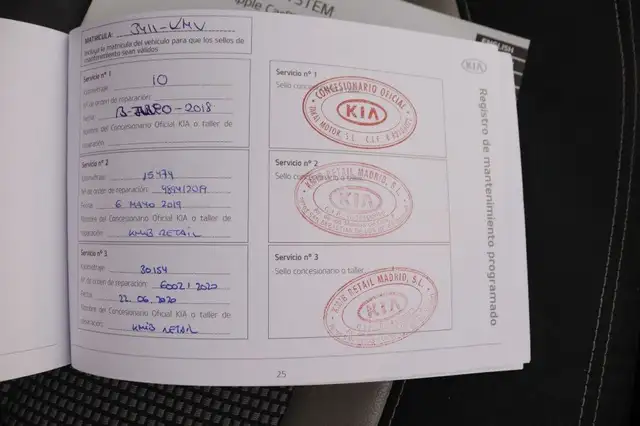 SYSTEM
ENGLISH
MATRICULA:
Incluya la matrícula del vehículo para que los sellos de
mantenimiento sean válidos
Servicio nº 1
Kilometraje: 10
Nº de orden de reparación:
Fecha: - 2018
Nombre del Concesionario Oficial KIA o taller de
reparación:
Servicio nº 2
Kilometraje: 15474
Nº de orden de reparación:
Fecha: 6 MAYO 2019
Nombre del Concesionario Oficial KIA o taller de
reparación: KMIB RETAIL
Servicio nº 3
Kilometraje: 30154
Nº de orden de reparación: 6002 / 2020
Fecha: 22.06.2020
Nombre del Concesionario Oficial KIA o taller de
reparación: KMIB RETAIL
Servicio nº 1
Sello
CONCESIONARIO OFICIAL
KIA
MOTOR, S.L. C.I.F.
Servicio nº 2
Sello concesionario o taller
RETAIL MADRID, S.L.
KIA
Servicio nº 3
Sello concesionario o taller
KMIB RETAIL MADRID, S.L.
KIA
KIA
Registro de mantenimiento programado
25